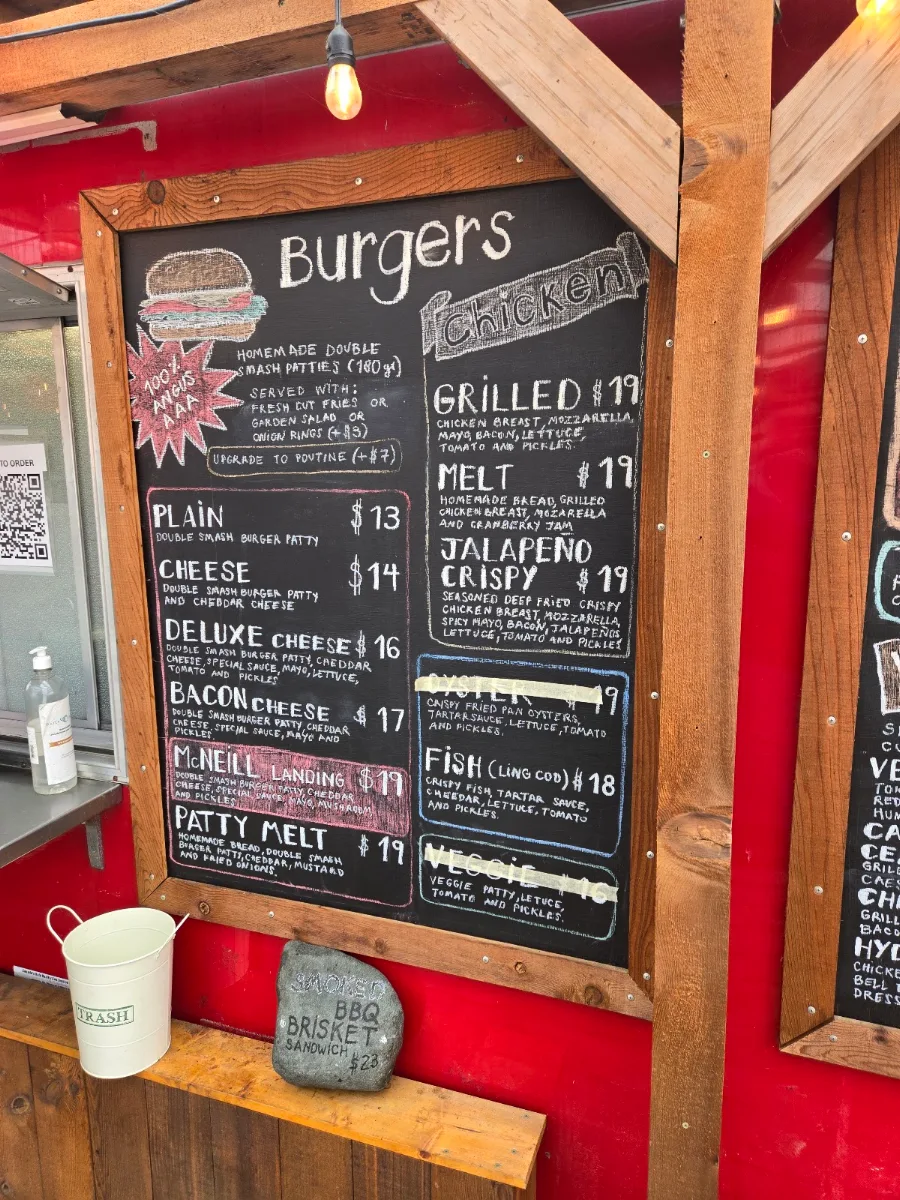 Burgers
100%
ANGUS
AAA
HOMEMADE DOUBLE
SMASH PATTIES (180 gr)
SERVED WITH:
FRESH CUT FRIES OR
GARDEN SALAD OR
ONION RINGS (+$3)
UPGRADE TO POUTINE (+$7)
PLAIN $13
DOUBLE SMASH BURGER PATTY
CHEESE $14
DOUBLE SMASH BURGER PATTY
AND CHEDDAR CHEESE
DELUXE CHEESE $16
DOUBLE SMASH BURGER PATTY, CHEDDAR
CHEESE, SPECIAL SAUCE, MAYO, LETTUCE,
TOMATO AND PICKLES
BACON CHEESE $17
DOUBLE SMASH BURGER PATTY CHEDDAR
CHEESE, SPECIAL SAUCE, MAYO AND
PICKLES
McNEILL LANDING $19
DOUBLE SMASH BURGER PATTY, CHEDDAR
CHEESE, SPECIAL SAUCE, MAYO, MUSHROOM
AND PICKLES
PATTY MELT $19
HOMEMADE BREAD, DOUBLE SMASH
BURGER PATTY, CHEDDAR, MUSTARD
AND FRIED ONIONS.
Chicken
GRILLED $19
CHICKEN BREAST, MOZZARELLA,
MAYO, BACON, LETTUCE,
TOMATO AND PICKLES
MELT $19
HOMEMADE BREAD, GRILLED
CHICKEN BREAST, MOZARELLA
AND CRANBERRY JAM
JALAPEÑO
CRISPY $19
SEASONED DEEP FRIED CRISPY
CHICKEN BREAST, MOZZARELLA,
SPICY MAYO, BACON, JALAPEÑOS
LETTUCE, TOMATO AND PICKLES
OYSTER 19
CRISPY FRIED PAN OYSTERS,
TARTAR SAUCE, LETTUCE, TOMATO
AND PICKLES.
FISH (LING COD) $18
CRISPY FISH, TARTAR SAUCE,
CHEDDAR, LETTUCE, TOMATO
AND PICKLES.
VEGGIE $16
VEGGIE PATTY, LETUCE,
TOMATO AND PICKLES.
TO ORDER
TRASH
SMOKED
BBQ
BRISKET
SANDWICH
$23